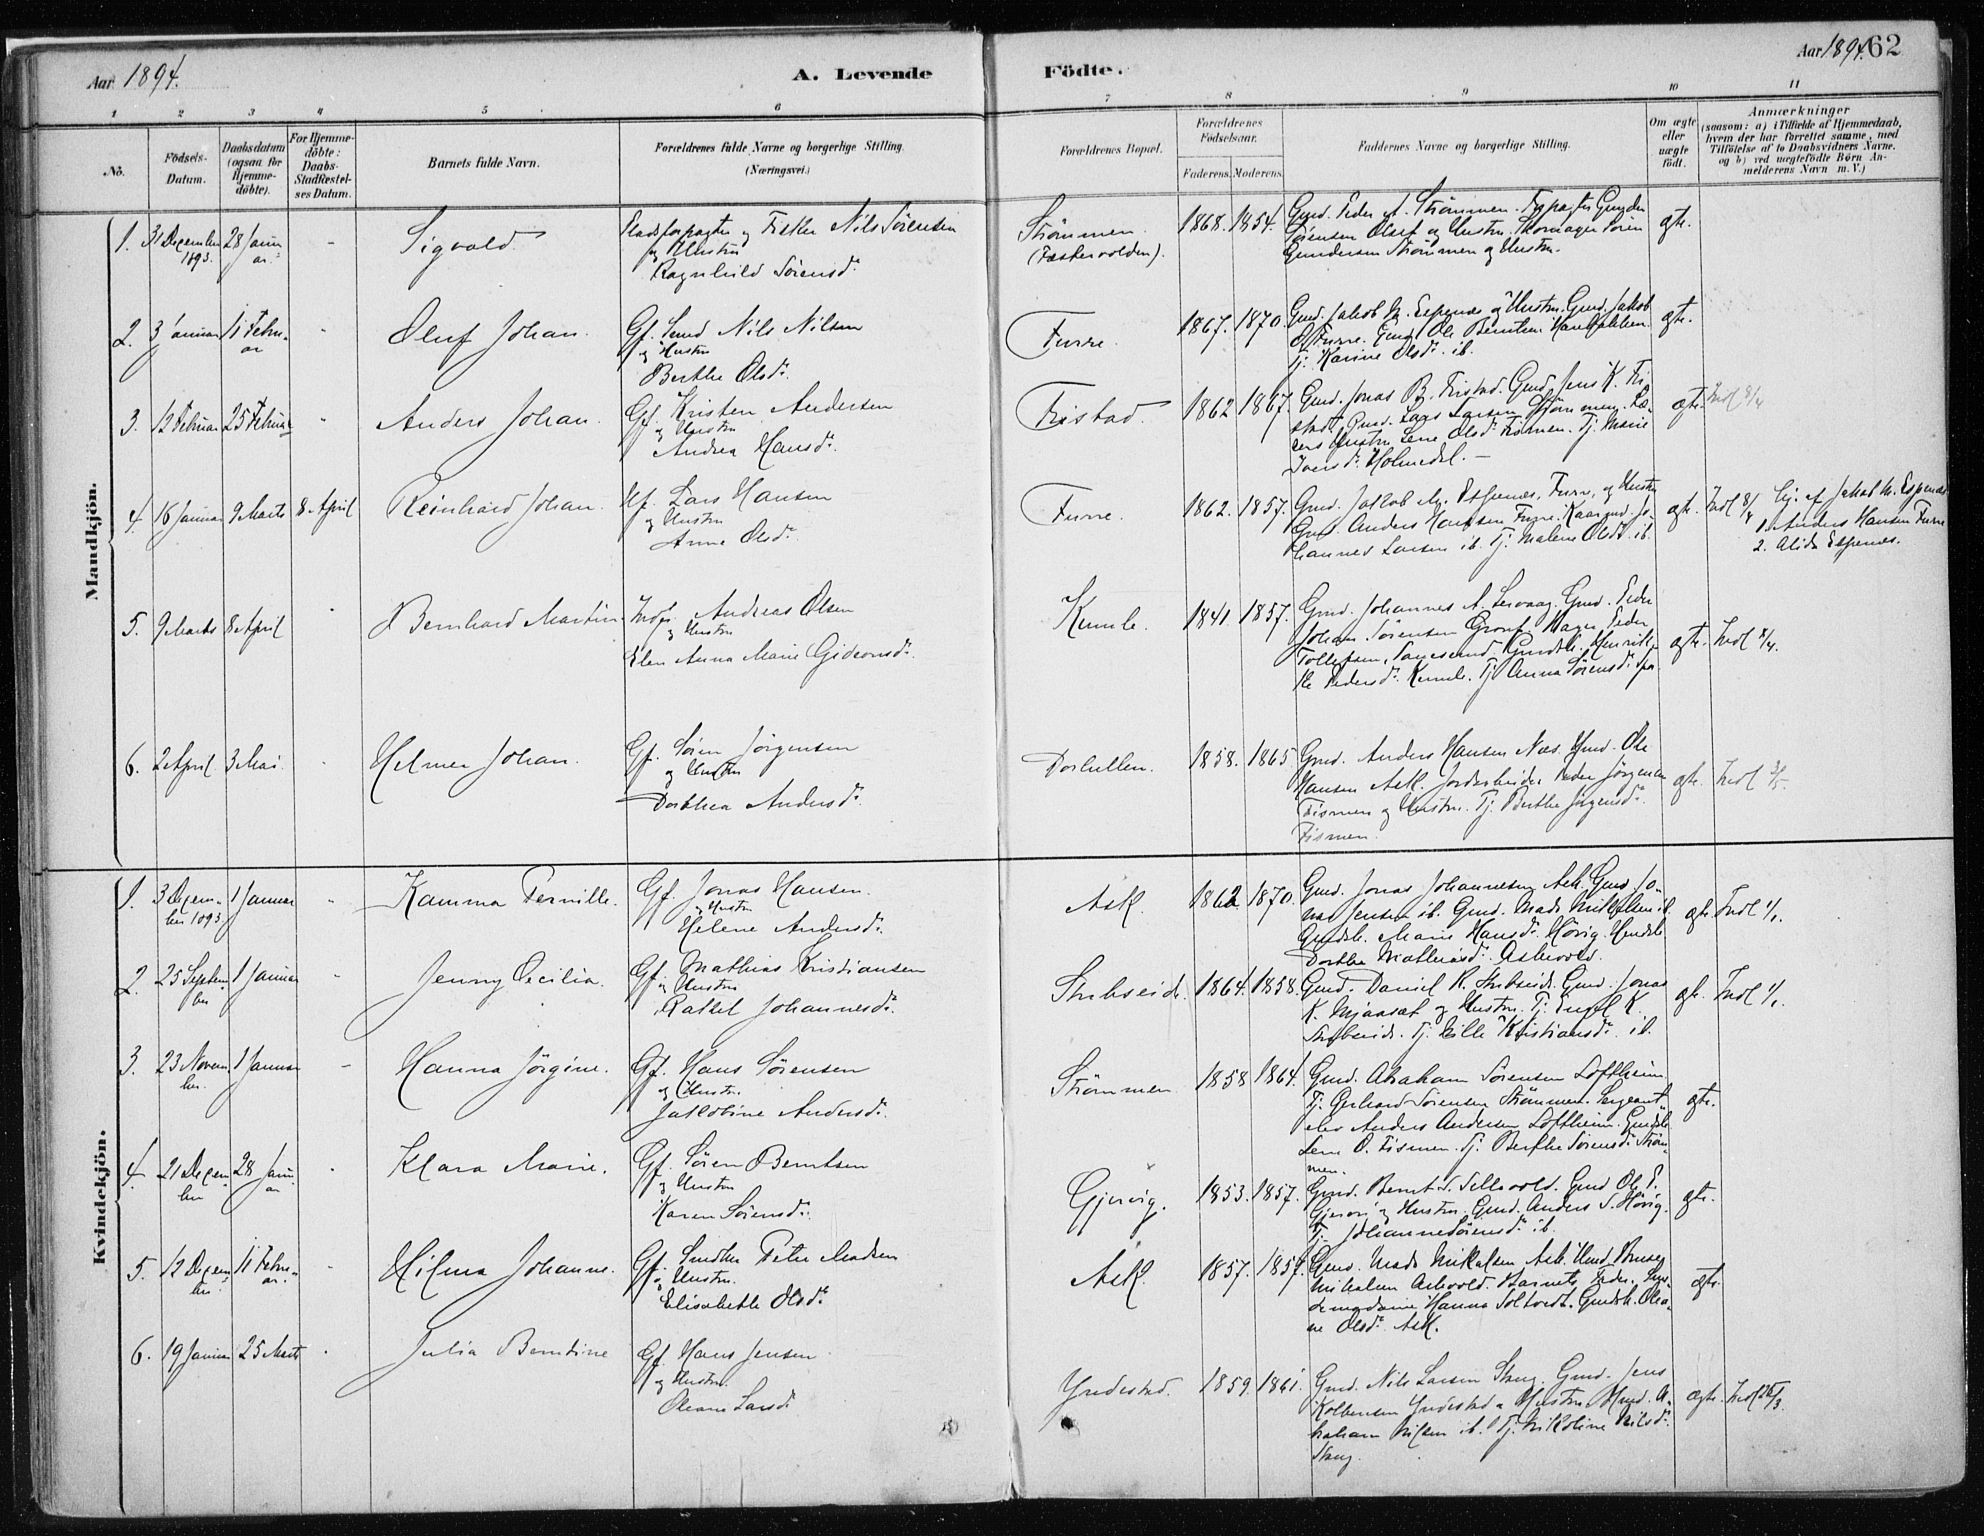 Aar 1894.
A. Levende
Födte.
Aar 1894.
62
1 2 3 4 5 6 7 8 9 10 11
No.
Födsels-
Datum.
Daabsdatum
(ogsaa for
Hjemme-
döbte).
For Hjemme-
döbte:
Daabs-
Stadfæstel-
ses Datum.
Barnets fulde Navn.
Forældrenes fulde Navne og borgerlige Stilling.
(Næringsvei.)
Forældrenes Bopæl.
Forældrenes
Födselsaar.
Faderens. Moderens.
Faddernes Navne og borgerlige Stilling.
Om ægte
eller
uægte
födt.
Anmærkninger
(saasom: a) i Tilfælde af Hjemmedaab,
hvem der har forrettet samme, med
Tilföielse af to Daabsvidners Navne.
og b) ved uægtefödte Börn An-
melderens Navn m. V.)
Mandkjön.
1. 31 December 28 Janu
1893. ar
Sigvald
Pladsforpagter og Fisker Nils Sörensen
og Hustru
Ragnhild Sörensdr.
Strömmen
(Fæstervolden).
1868. 1854.
Gmd. Peder A. Strömmen. Forpagter Gunder
Sörensen Olset og Hustru. Skomager Sören
Gundersen Strömmen og Hustru.
ægte.
2. 3 Januar 11 Febru-
ar
Oluf Johan.
Gf. Smed Nils Nilsen
og Hustru
Berthe Olsdr.
Furre.
1867. 1870.
Gmd. Jakob M. Espenes og Hustru. Gmd. Jakob
O. Furre. Gmd. Ole Berntsen
Tj. Karine Olsdr. ib.
ægte.
3. 12 Februar 25 Februar
Anders Johan.
Gf. Kristen Andersen
og Hustru
Andrea Hansdr.
Fristad.
1862 1867.
Gmd. Jonas B. Fristad. Gmd. Jens K. Fri-
stad. Gmd. Lars Larsen
Hustru Lene Olsdr. Fismen. Tj. Marie
Iversdr. Holmedal.
ægte. Indl 8/4
4. 16 Januar 9 Marts 8 April
Reinhard Johan.
Hf. Lars Hansen
og Hustru
Anne Olsdr.
Furre.
1862. 1857.
Gmd. Jakob M. Espenes, Furre, og Hustru
Gmd. Anders Hansen Furre. Kaarmd. Jo-
hannes Larsen ib. Tj. Malene Olsdr. ib.
ægte. Indl 8/4
Hj. af Jakob M. Espenes
1. Anders Hansen Furre
2. Alida Espenes.
5. 9 Marts 8 April
Bernhard Martin.
Andreas Olsen
og Hustru
Elen Anna Marie Gideonsdr.
Kumle.
1841 1857.
Gmd. Johannes A. Lervaag. Gmd. Peder
Johan Sörensen Grönf. Peder
Tollefsen, Gmdsk. Henrik-
ke Pedersdr. Kumle. Tj. Anna Sörensdr.
ægte. Indl 8/4.
6. 2 April 3 Mai
Helmer Johan.
Gf. Sören Jörgensen
og Hustru
Dorthea Andersdr.
1858. 1865
Gmd. Anders Hansen Næs. Gmd. Ole
Hansen Ask. Jordarbeider Peder Jörgensen
Fismen og Hustru. Tj. Berthe Jörgensdr.
Fismen.
ægte. Indl 3/5.
Kvindekjön.
1. 3 Decem- 1 Januar
ber 1893
Kamma Pernille.
Gf. Jonas Hansen.
og Hustru
Helene Andersdr.
Ask.
1862. 1870.
Gmd. Jonas Johannesen Ask. Gmd. Jo-
nas Jensen ib. Gmd. Mads Mikkelsen ib.
Gmdsk. Marie Hansdr. Hövig. Hmdsk.
Dorthe Mathiasdr. Askevold.
ægte. Indl 1/1.
2. 25 Septem 1 Januar
ber
Jenny Cecilia.
Gf. Mathias Kristiansen
og Hustru
Rakel Johannesdr.
Stubseid.
1864. 1858.
Gmd. Daniel R. Stubseid. Gmd. Jonas
K. Mjaaset og Hustru. Tj. Engel K.
Stubseid. Tj. Lille Kristiansdr. ib.
ægte. Indl 1/1.
3. 23 Novem 1 Januar
ber.
Hanna Jörgine.
Gf. Hans Sörensen
og Hustru
Jakobine Andersdr.
Strömmen
1858 1864.
Gmd. Abraham Sörensen Loftheim
Tj. Gerhard Sörensen Strömmen. Sergeant-
elev Anders Andersen Loftheim. Gmdsk.
Lene O. Fismen. Tj. Berthe Sörensdr. Ström-
men.
ægte.
4. 21 Decem 28 Janu
ber ar
Klara Marie.
Gf. Sören Berntsen
og Hustru
Karen Sörensdr.
Gjervig.
1853. 1857.
Gmd. Bernt S. Sellevold. Gmd Ole P.
Gjervig og Hustru. Gmd. Anders S. Hövig.
Tj. Johanne Sörensdr. ib.
ægte.
5. 12 Decem 11 Febru-
ber ar.
Hilma Johanne.
Gf. Snedker Peter Madsen
og Hustru.
Elisabeth Olsdr.
Ask.
1857. 1857.
Gmd. Mads Mikalsen Ask.
Mikalsen Askevold. Barnets Fader.
Hanna Soltvedt. Gmdsk. Olia-
ne Olsdr. Ask.
ægte.
6. 19 Januar 25 Marts
Julia Berntine
Gf. Hans Jensen
og Hustru.
Oleane Larsdr.
Yndestad.
1859. 1861.
Gmd. Nils Larsen Skug. Gmd. Jens
Kolbensen Yndestad og Hustru. Hmd. A-
braham Nilsen ib. Tj. Nikoline Nilsdr.
Skug.
ægte. Indl 26/3.